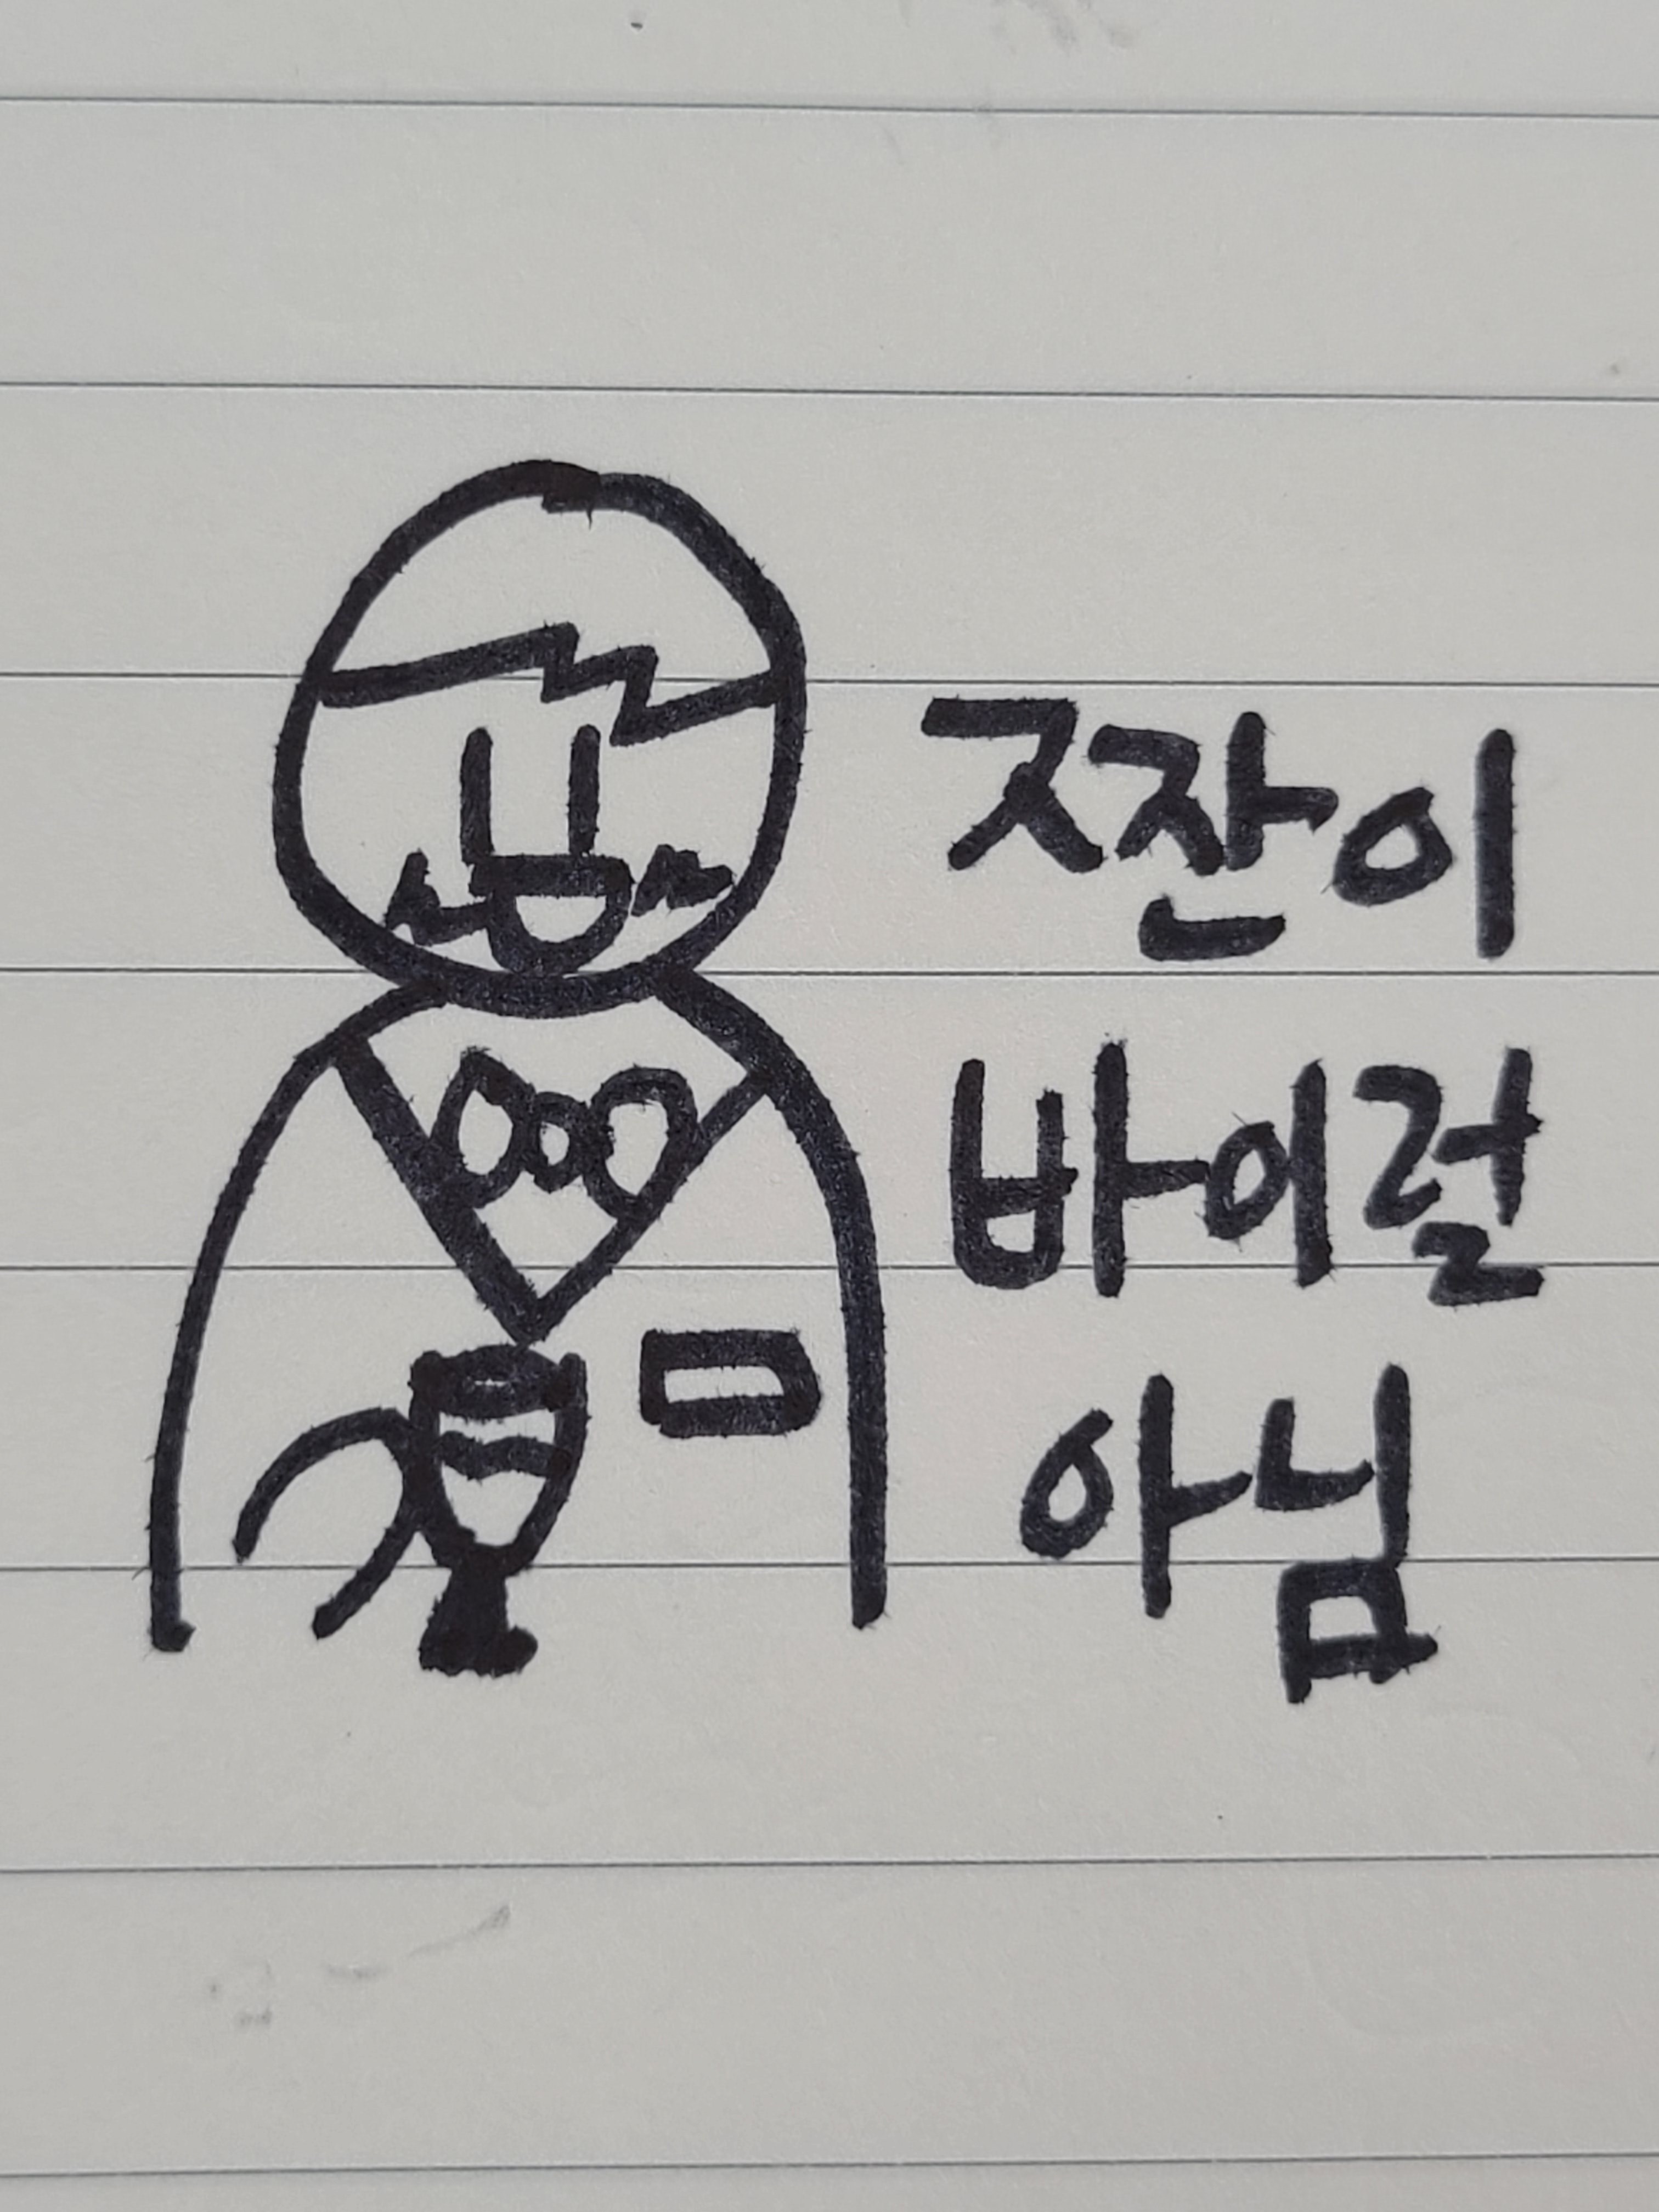 ㅈ잔이
바이럴
아님